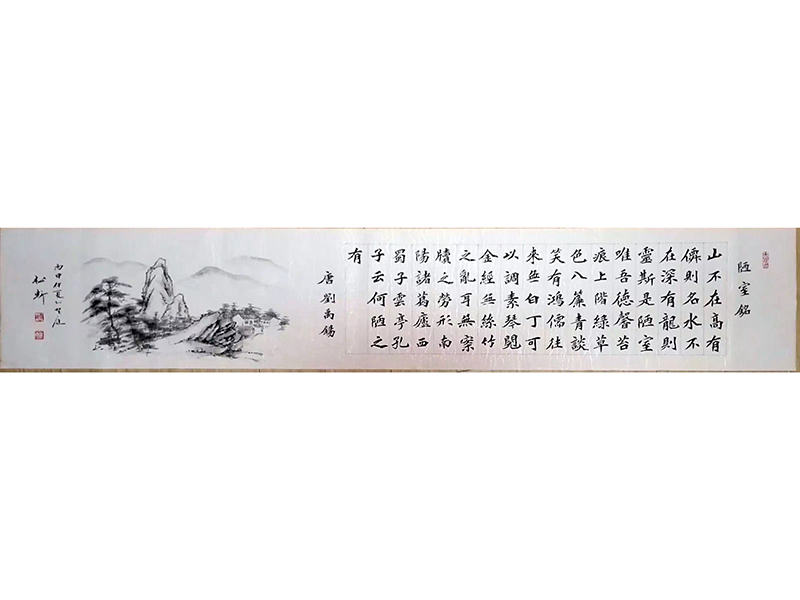 陋室銘
山不在高有
僊則名水不
在深有龍則
靈斯是陋室
唯吾德馨苔
痕上階綠草
色入簾青談
笑有鴻儒往
来無白丁可
以調素琴閱
金經無絲竹
之亂耳無案
牘之勞形南
陽諸葛廬西
蜀子雲亭孔
子云何陋之
有
唐劉禹錫
丙申仲夏
松軒